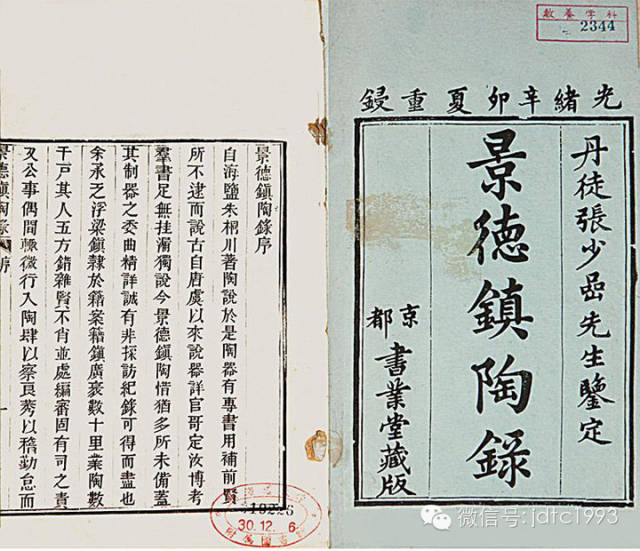 光緒辛卯夏重鋟
丹徒張少嵒先生鑒定
景德鎮陶錄
京都
書業堂藏版
景德鎮陶錄序
自海鹽朱桐川著陶說於是陶器有專書用補前賢
所不逮而說古自唐虞以來說器詳官哥定汝博考
羣書足無挂漏獨說今景德鎮陶惜猶多所未備蓋
其制器之委曲精詳誠有非採訪紀錄可得而盡也
余承乏浮梁鎮隸於籍案籍鎮廣袤數十里業陶數
千戶其人五方錯雜賢不肖並處編審固有司之責
又公事偶間輙微行入陶肆以察良莠以稽勤怠而
景德鎮陶錄 序
一
2344
19226
30.12.6
微信号:jdtc1993